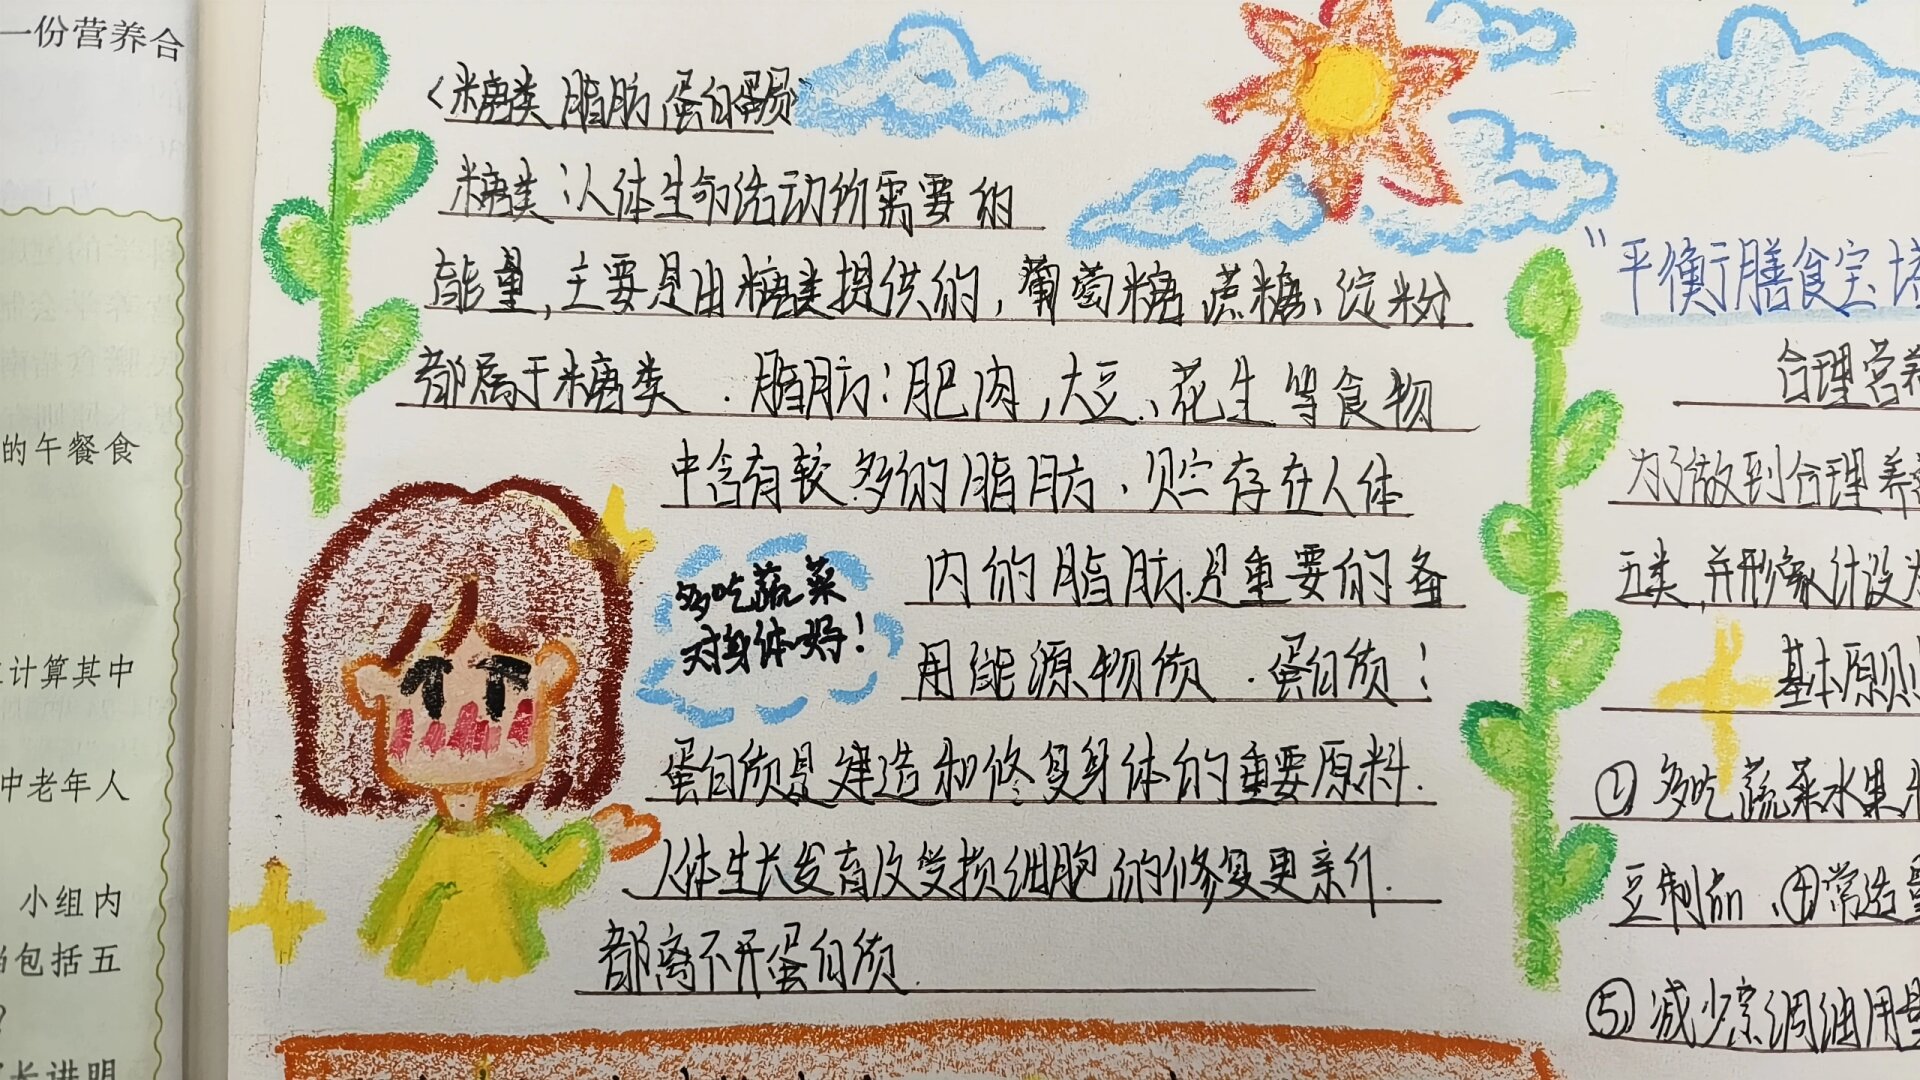 一份营养合
的午餐食
计算其中
中老年人
小组内
包括五
长讲明
<糖类 脂肪 蛋白质>
糖类:人体生命活动所需要的
能量,主要是由糖类提供的,葡萄糖、蔗糖、淀粉
都属于糖类.脂肪:肥肉,大豆、花生等食物
中含有较多的脂肪,贮存在人体
内的脂肪是重要的备
用能源物质.蛋白质:
蛋白质是建造和修复身体的重要原料.
人体生长发育及受损细胞的修复更新
都离不开蛋白质.
多吃蔬菜
对身体好!
"平衡膳食宝塔
合理营养
为了做到合理养
五类,并形象计设为
基本原则
①多吃蔬菜水果
豆制品、④常适量
⑤减少烹调油用量